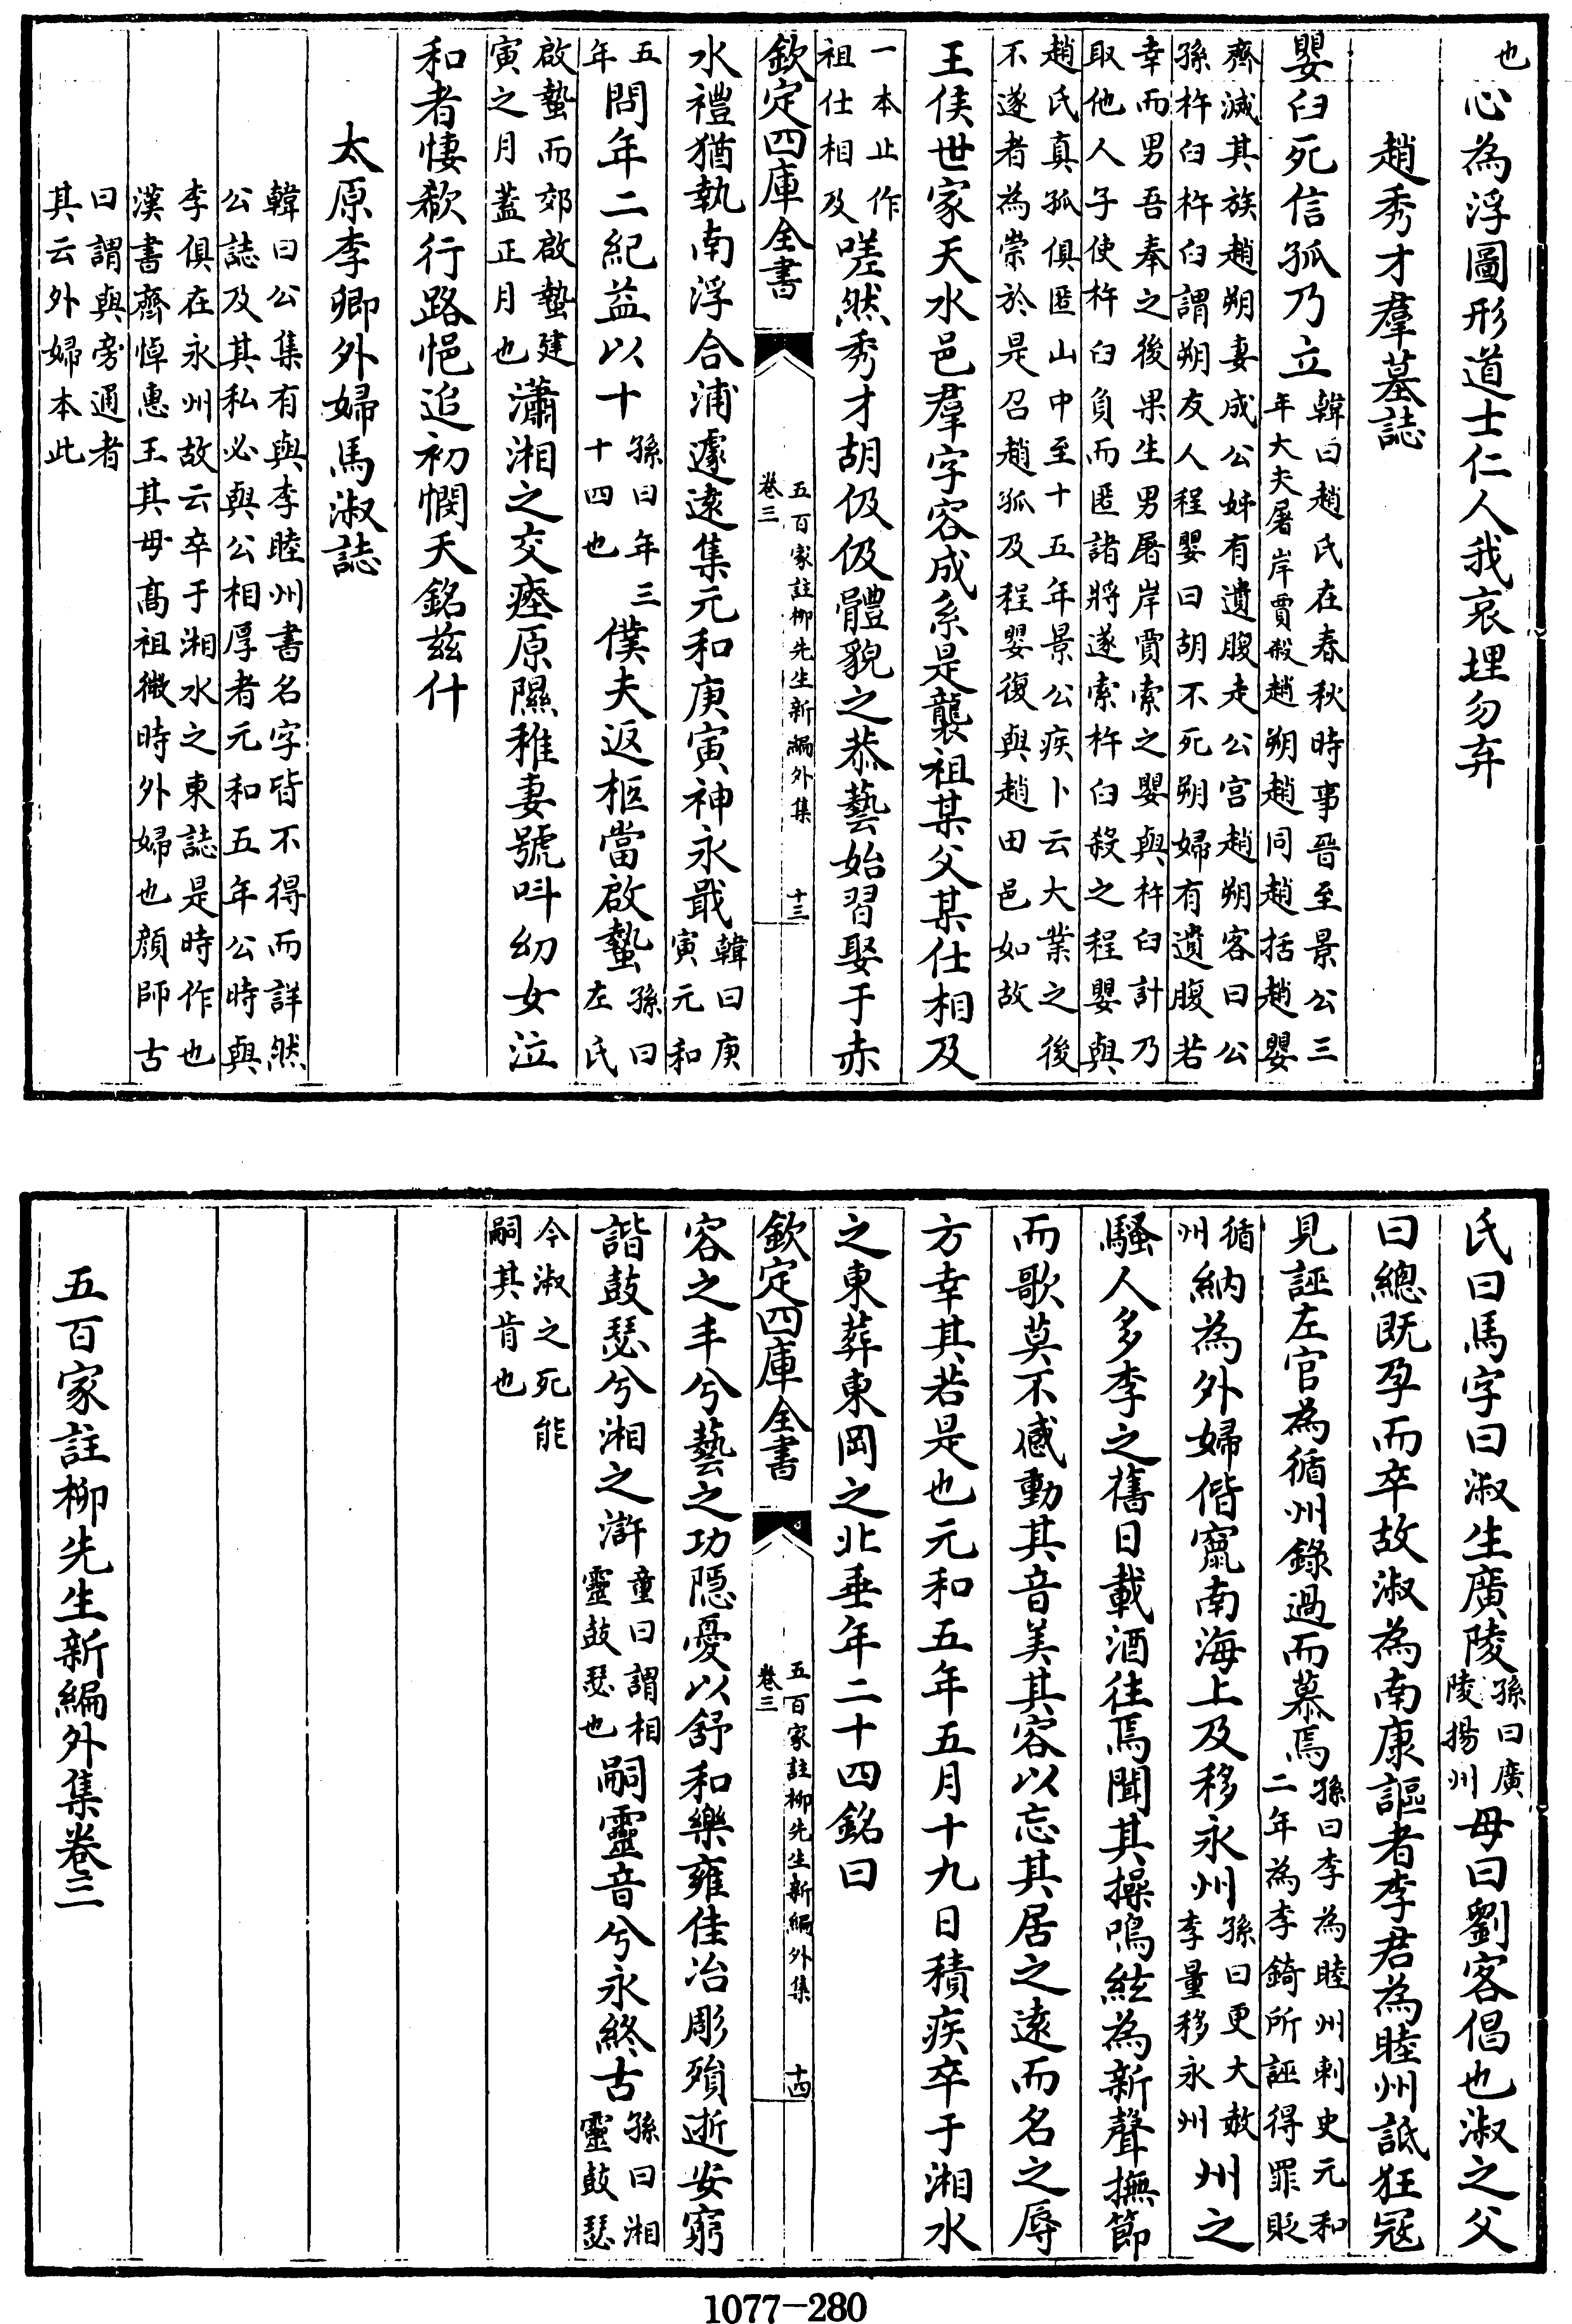 也心為浮圖形道士仁人我哀埋勿弃
趙秀才羣墓誌
嬰臼死信孤乃立韓曰趙氏在春秋時事晉至景公三年大夫屠岸賈殺趙朔趙同趙括趙嬰
齊滅其族趙朔妻成公姊有遺腹走公宮趙朔客曰公孫杵臼杵臼謂朔友人程嬰曰胡不死朔婦有遺腹若
幸而男吾奉之後果生男屠岸賈索之嬰與杵臼計乃取他人子使杵臼負而匿諸將遂索杵臼殺之程嬰與
趙氏真孤俱匿山中至十五年景公疾卜云大業之後不遂者為祟於是召趙孤及程嬰復與趙田邑如故
王侯世家天水邑羣字容成系是襲祖某父某仕相及
一本止作祖仕相及嗟然秀才胡伋伋體貌之恭藝始習娶于赤
欽定四庫全書
五百家註柳先生新編外集
卷三
十三
水禮猶執南浮合浦遽遠集元和庚寅神永戢韓曰庚寅元和
五年問年二紀益以十孫曰年三十四也僕夫返柩當啟蟄孫曰左氏
啟蟄而郊啟蟄建寅之月蓋正月也瀟湘之交瘞原隰稚妻號呌幼女泣
和者悽欷行路悒追初憫天銘茲什
太原李卿外婦馬淑誌
韓曰公集有與李睦州書名字皆不得而詳然公誌及其私必與公相厚者元和五年公時與
李俱在永州故云卒于湘水之東誌是時作也漢書齊悼惠王其母髙祖微時外婦也顔師古
曰謂與旁通者其云外婦本此
氏曰馬字曰淑生廣陵孫曰廣陵揚州母曰劉客倡也淑之父
曰總既孕而卒故淑為南康謳者李君為睦州詆狂寇
見誣左官為循州錄過而慕焉孫曰李為睦州刺史元和二年為李錡所誣得罪貶
循州納為外婦偕竄南海上及移永州孫曰更大赦李量移永州州之
騷人多李之舊日載酒往焉聞其操鳴絃為新聲撫節
而歌莫不感動其音美其容以忘其居之遠而名之辱
方幸其若是也元和五年五月十九日積疾卒于湘水
之東葬東岡之北垂年二十四銘曰
欽定四庫全書
五百家註柳先生新編外集
卷三
十四
容之丰兮藝之功隠憂以舒和樂雍佳冶彫殞逝安窮
諧鼓瑟兮湘之滸童曰謂相靈鼓瑟也嗣靈音兮永終古孫曰湘靈鼓瑟
今淑之死能嗣其肯也
五百家註柳先生新編外集卷三
1077—280